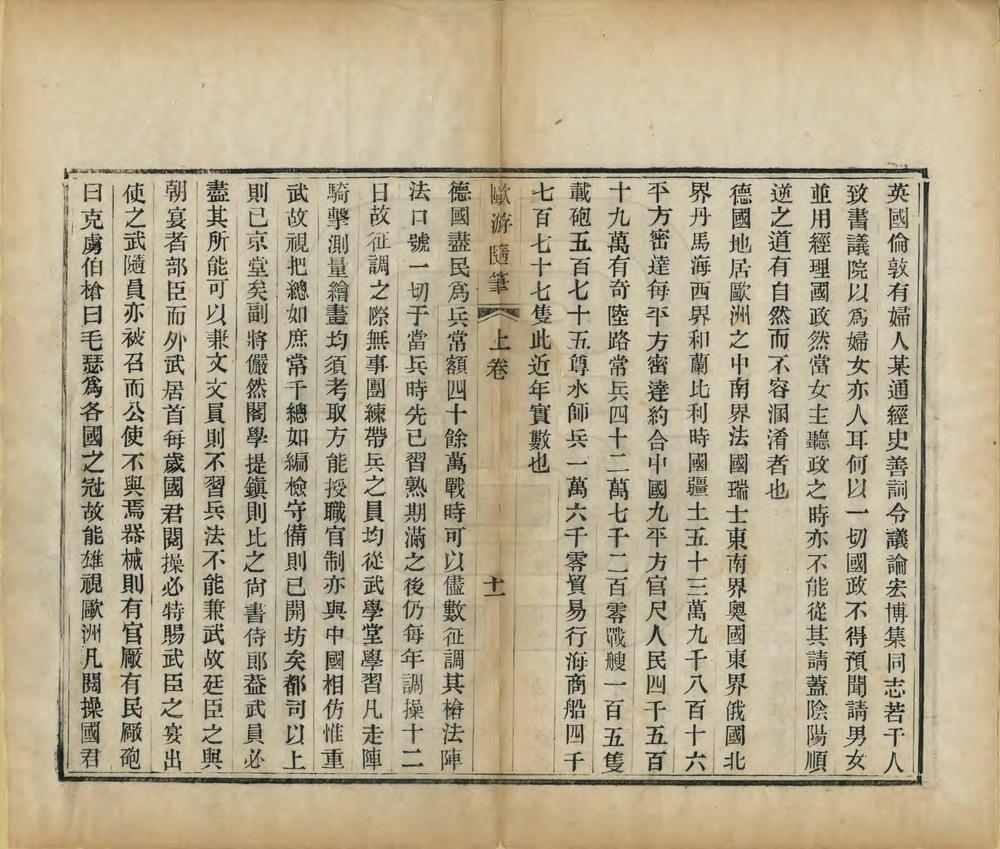 英國倫敦有婦人某通經史善詞令議論宏博集同志若干人
致書議院以爲婦女亦人耳何以一切國政不得預聞請男女
並用經理國政然當女主聽政之時亦不能從其請蓋陰陽順
逆之道有自然而不容溷淆者也
德國地居歐洲之中南界法國瑞士東南界奧國東界俄國北
界丹馬海西界和蘭比利時國疆土五十三萬九千八百十六
平方密達每平方密達約合中國九平方官尺人民四千五百
十九萬有奇陸路常兵四十二萬七千二百零戰艘一百五隻
載砲五百七十五尊水師兵一萬六千零貿易行海商船四千
七百七十七隻此近年實數也
歐游隨筆 上卷 十一
德國盡民爲兵常額四十餘萬戰時可以儘數征調其槍法陣
法口號一切于當兵時先已習熟期滿之後仍每年調操十二
日故征調之際無事團練帶兵之員均從武學堂學習凡走陣
騎擊測量繪畫均須考取方能授職官制亦與中國相仿惟重
武故視把總如庶常千總如編檢守備則已開坊矣都司以上
則已京堂矣副將儼然閣學提鎮則比之尙書侍郎葢武員必
盡其所能可以兼文文員則不習兵法不能兼武故廷臣之與
朝宴者部臣而外武居首每歲國君閱操必特賜武臣之宴出
使之武隨員亦被召而公使不與焉器械則有官厰有民厰砲
曰克虜伯槍曰毛瑟爲各國之冠故能雄視歐洲凡閱操國君